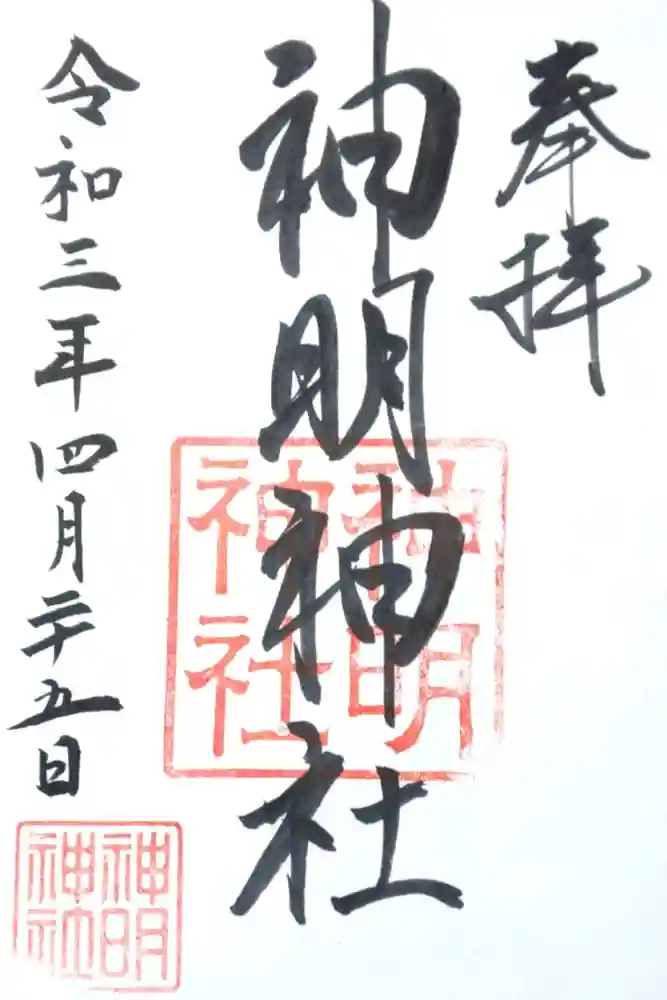 奉拝
神明神社
令和三年四月二十五日
神明
神社
神明
神社